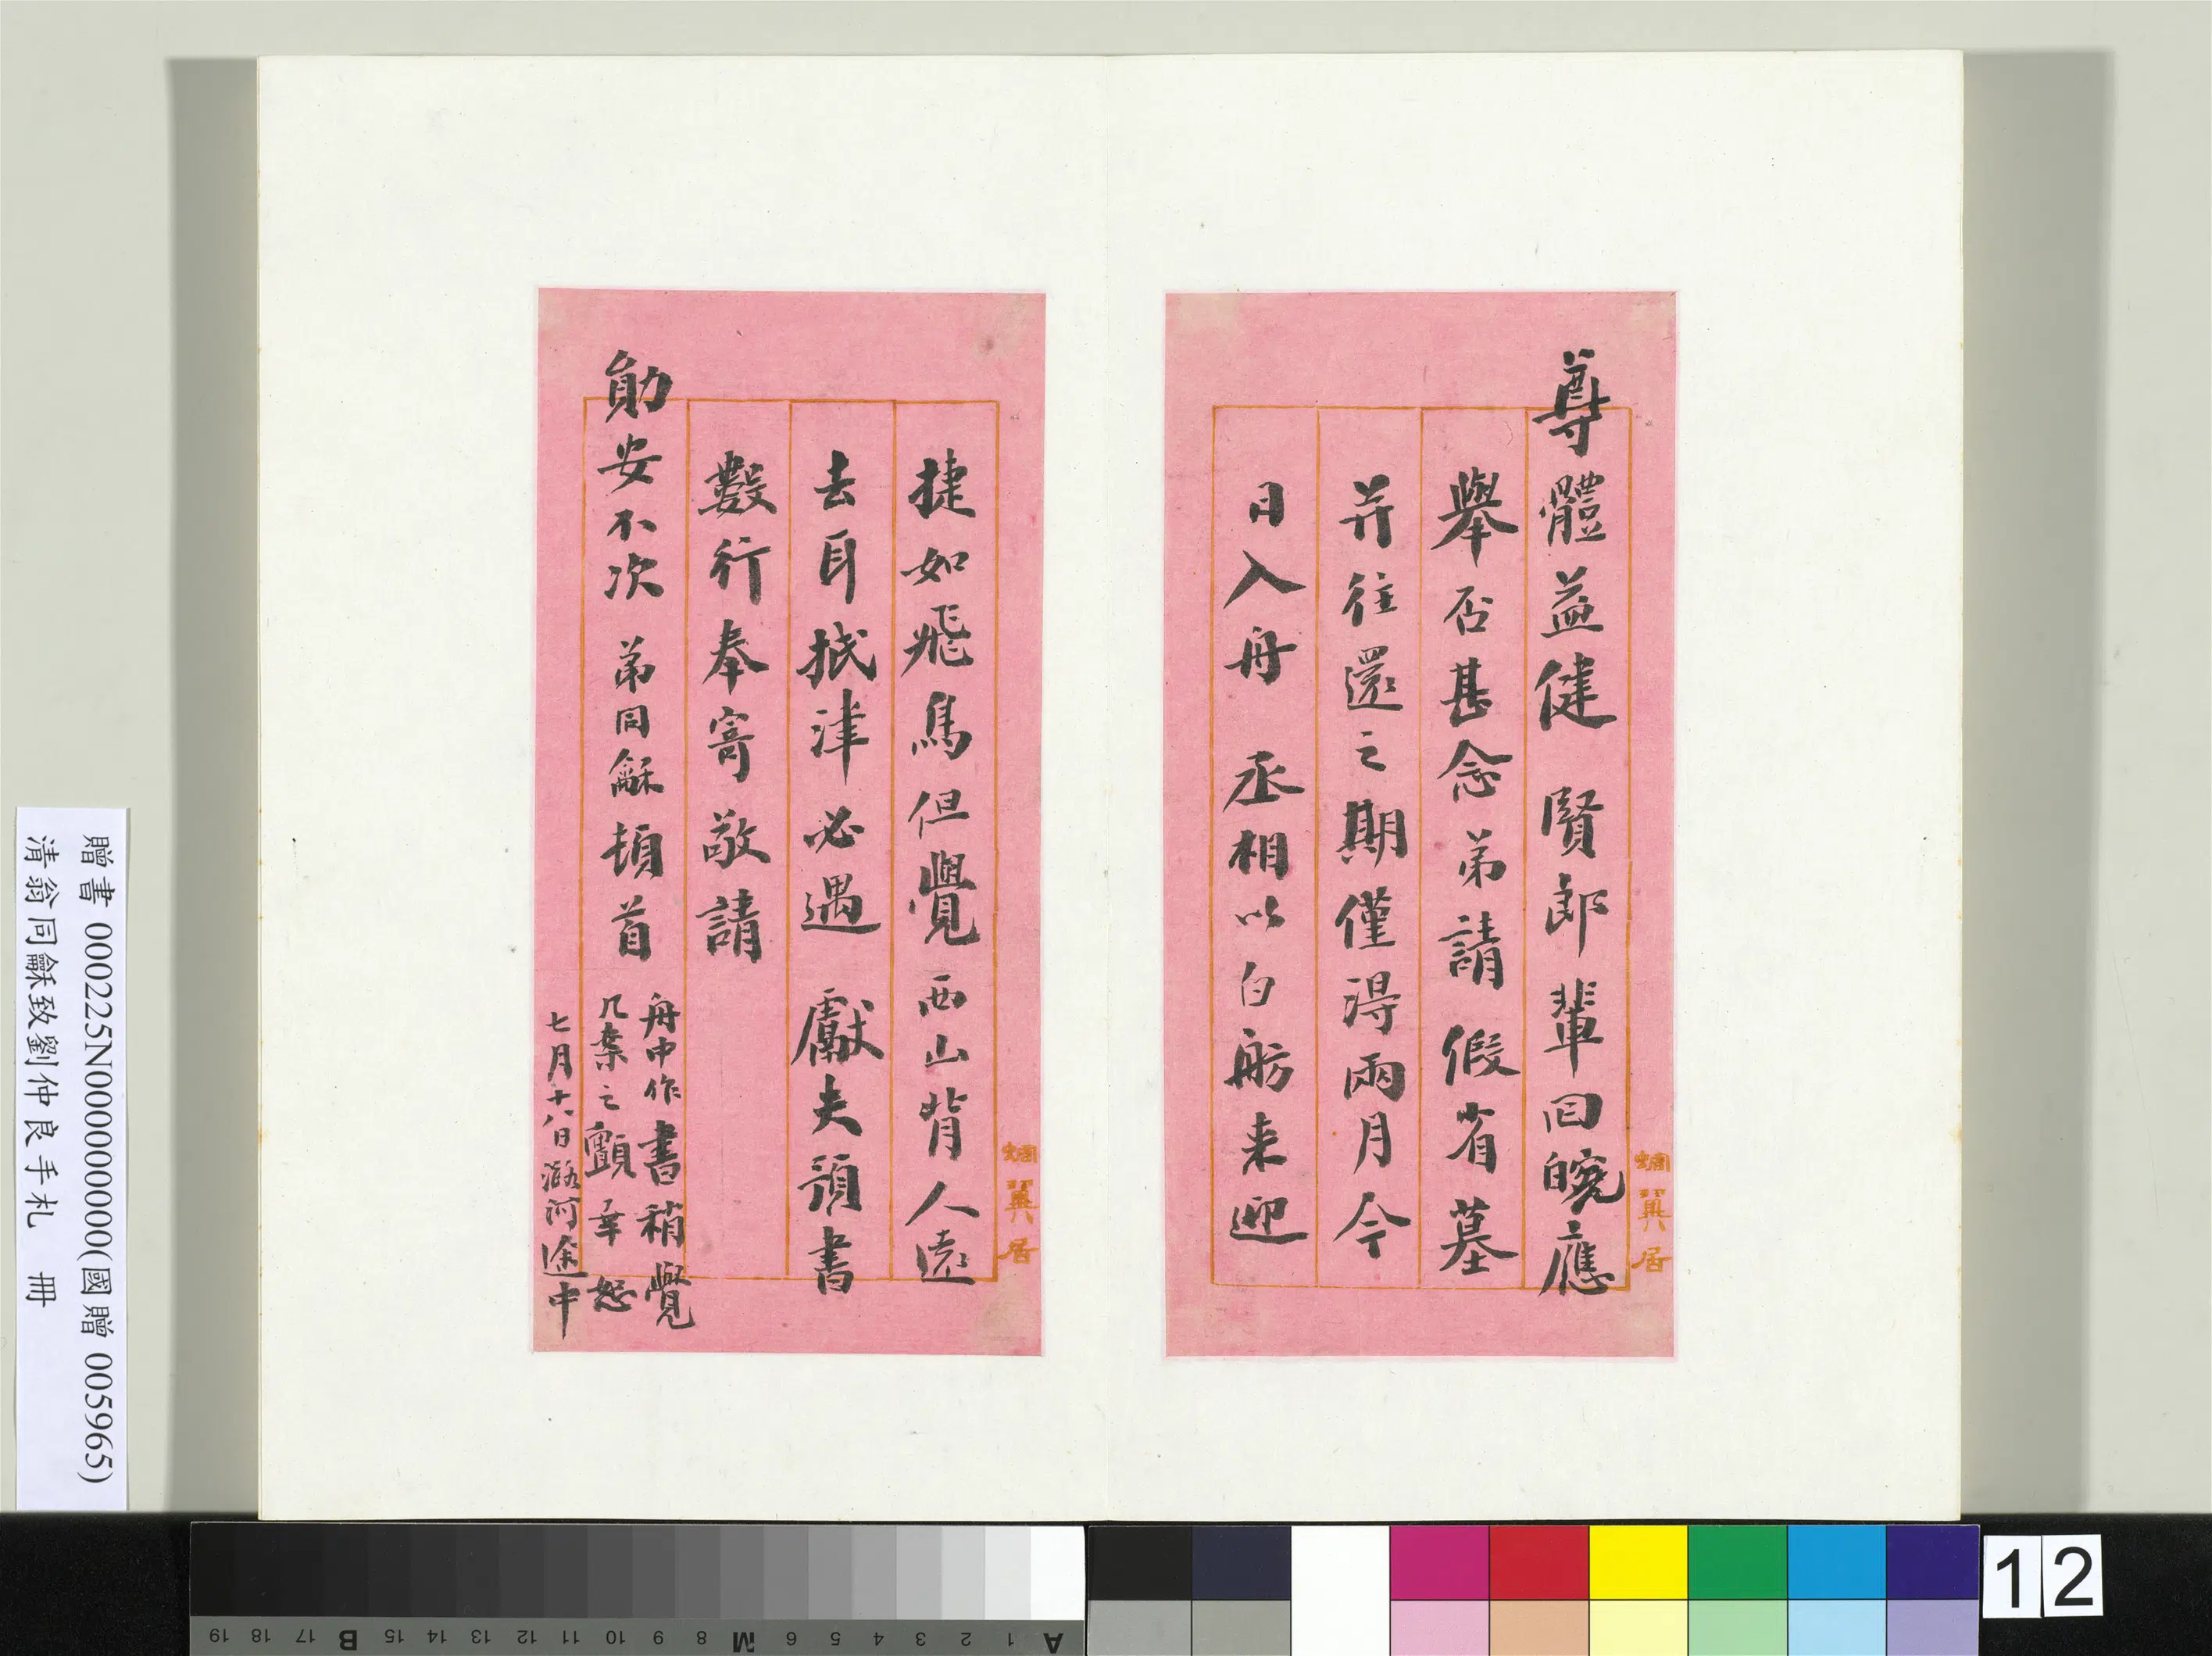 尊體益健 賢郎輩回皖應
舉否甚念弟請假省墓
并往還之期僅得兩月今
日入舟 丞相以白舫来迎
捷如飛鳥但覺西山背人遠
去耳抵津必遇 獻夫頭書
數行奉寄敬請
勛安不次 弟同龢頓首
舟中作書稍覺
几案之顫幸恕
七月十八日潞河途中
蜩翼居
蜩翼居
贈書 000225N000000000(國贈 005965)
清翁同龢致劉仲良手札 冊
12
A 1 2 3 4 5 6 M 8 9 10 11 12 13 14 15 B 17 18 19